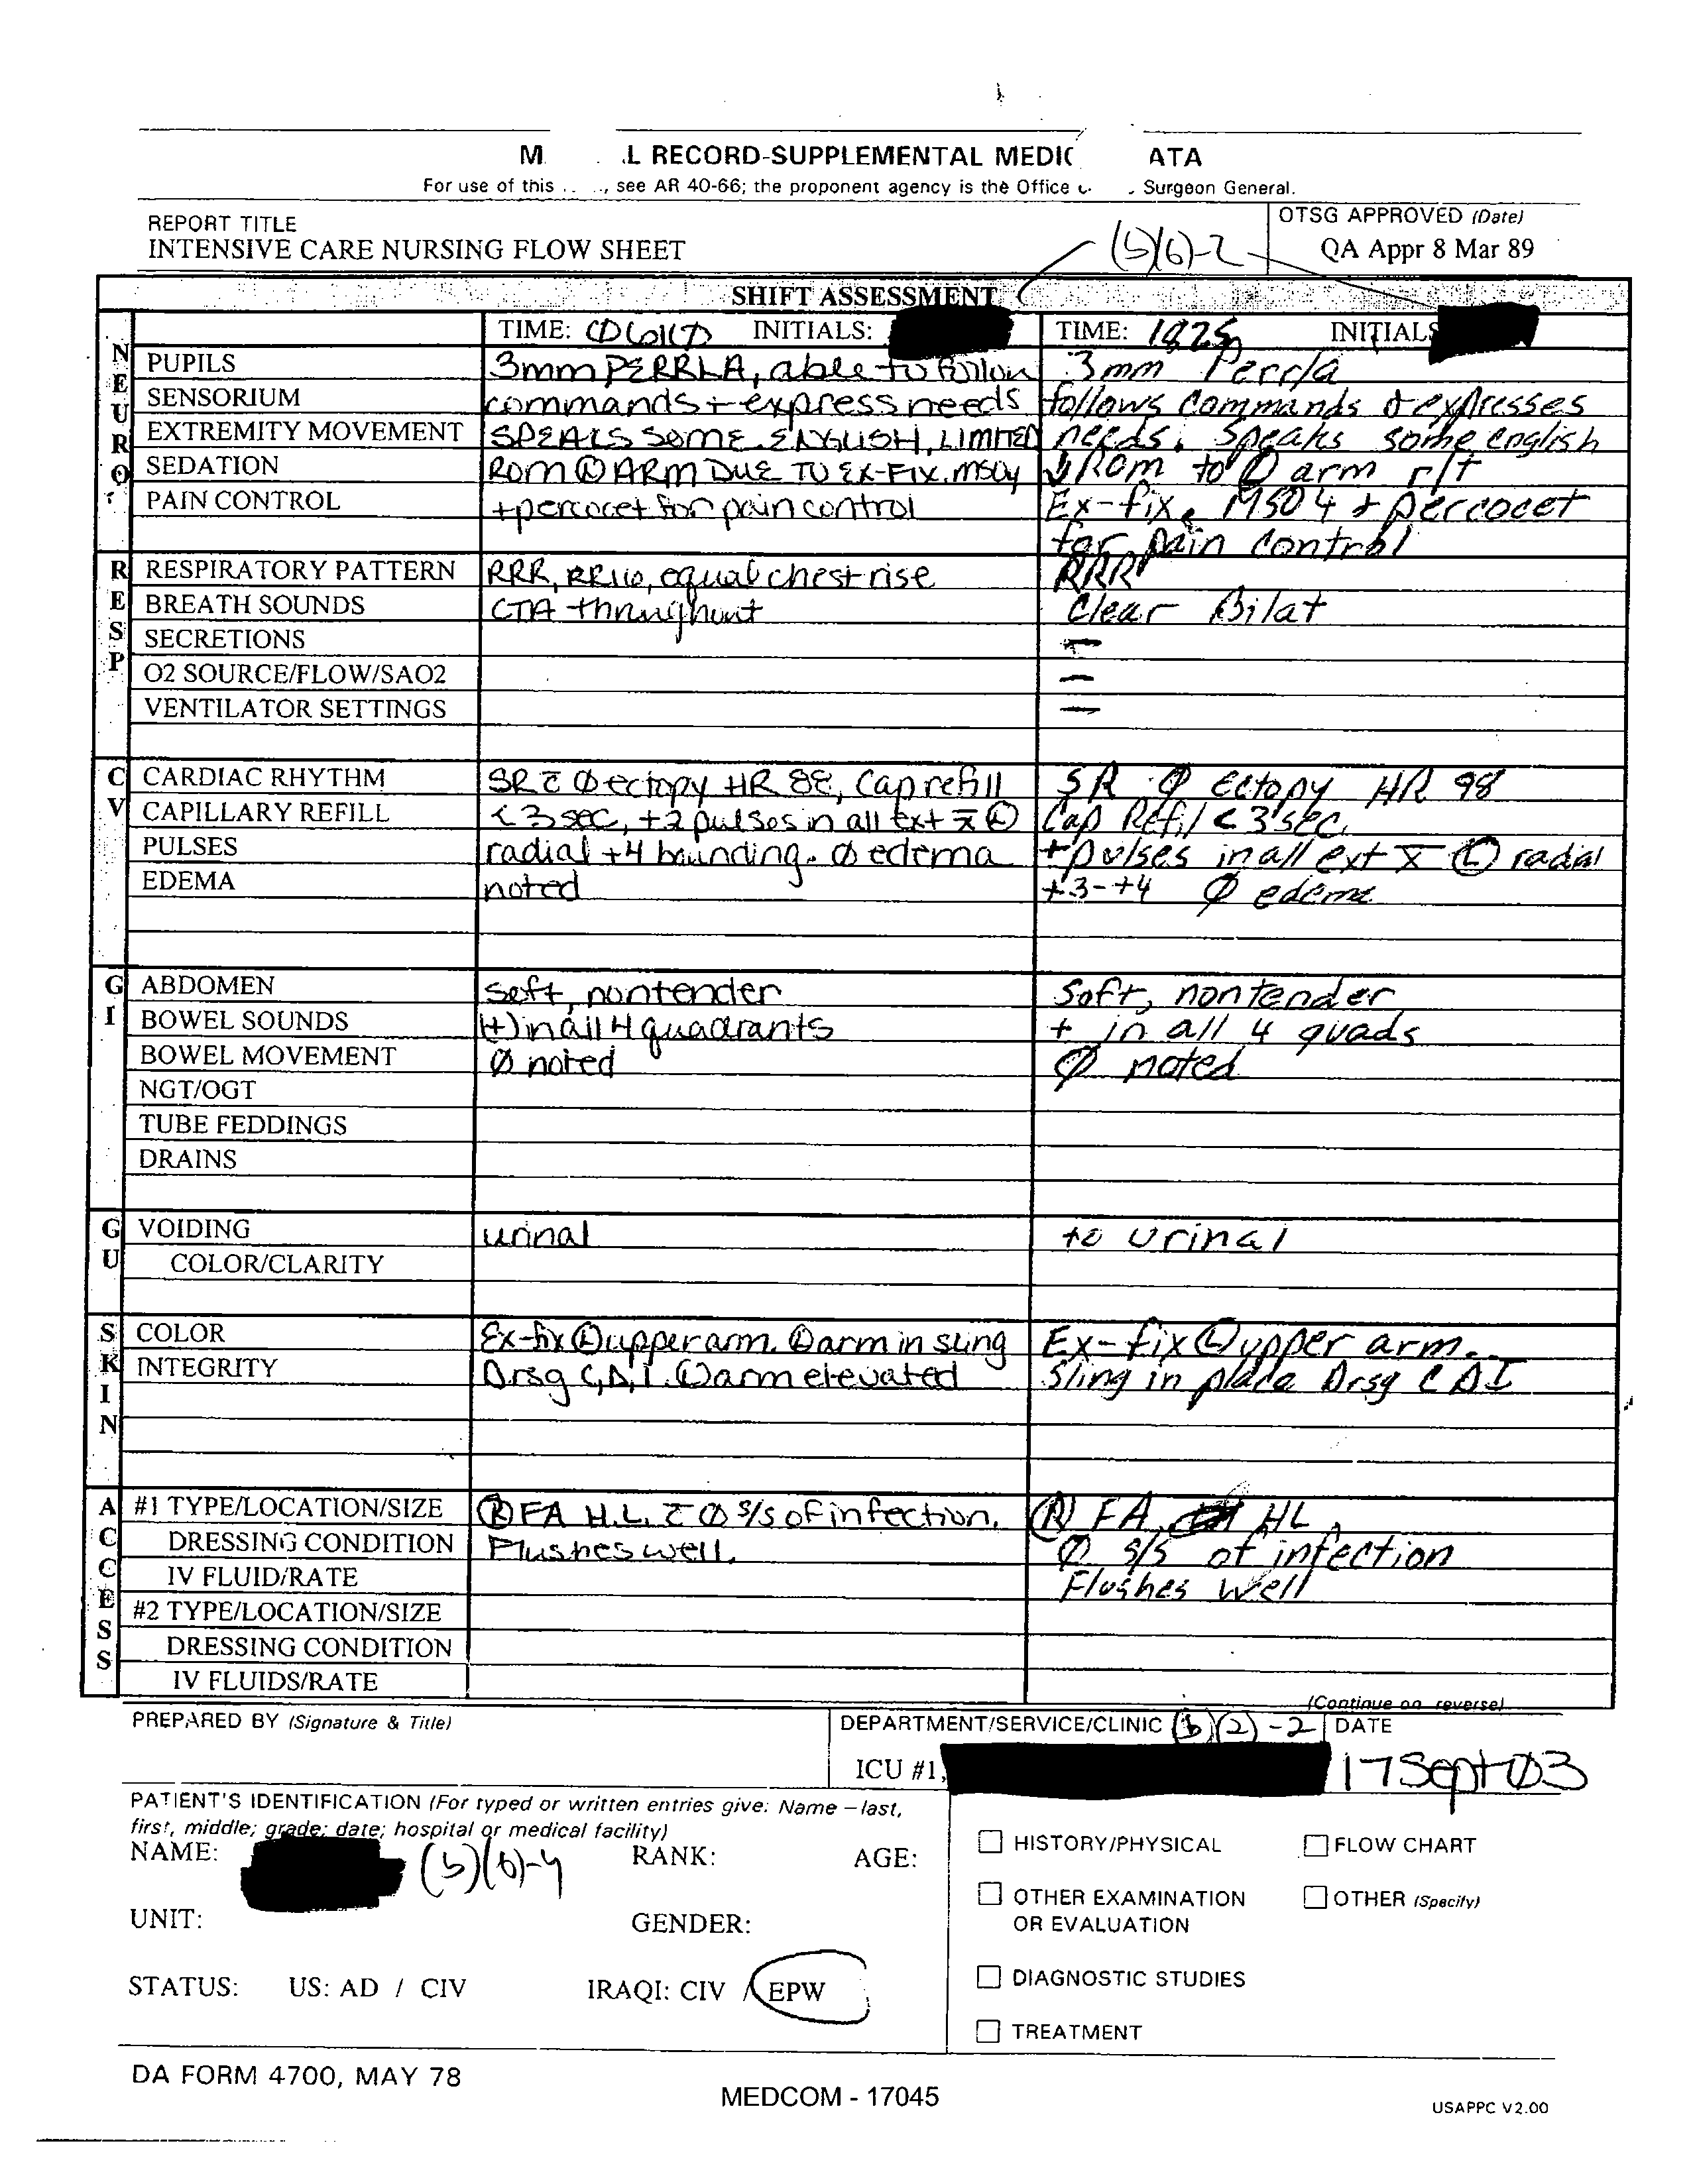 M .L RECORD-SUPPLEMENTAL MEDIC ATA
For use of this .. .., see AR 40-66; the proponent agency is the Office . Surgeon General.
REPORT TITLE
INTENSIVE CARE NURSING FLOW SHEET
(b)(6)-2
OTSG APPROVED (Date)
QA Appr 8 Mar 89
SHIFT ASSESSMENT
TIME: INITIALS: TIME: INITIALS
NEURO
PUPILS 3mm PERRLA, able to follow 3mm Perrla
SENSORIUM commands + express needs follows commands & expresses
EXTREMITY MOVEMENT SPEAKS SOME ENGLISH, LIMITED needs. Speaks some english
SEDATION ROM Ⓛ ARM DUE TO EX-FIX. MSO4 ↓ ROM to Ⓛ arm r/t
PAIN CONTROL + percocet for pain control Ex-fix. MSO4 + percocet
for pain control
RESP
RESPIRATORY PATTERN RRR, RR16, equal chest rise RRR
BREATH SOUNDS CTA throughout Clear Bilat
SECRETIONS —
O2 SOURCE/FLOW/SAO2 —
VENTILATOR SETTINGS —
CV
CARDIAC RHYTHM SR c̄ Ø ectopy HR 88, Cap refill SR Ø Ectopy HR 98
CAPILLARY REFILL <3 sec, +2 pulses in all ext x̄ Ⓛ Cap Refil <3 sec.
PULSES radial +4 bounding. Ø edema + pulses in all ext x̄ Ⓛ radial
EDEMA noted +3-+4 Ø edema
GI
ABDOMEN soft, nontender Soft, nontender
BOWEL SOUNDS (+) in all 4 quadrants + in all 4 quads
BOWEL MOVEMENT Ø noted Ø noted
NGT/OGT
TUBE FEDDINGS
DRAINS
GU
VOIDING urinal to urinal
COLOR/CLARITY
SKIN
COLOR Ex-fix Ⓛ upper arm. Ⓛ arm in sling Ex-fix Ⓛ upper arm.
INTEGRITY Drsg C,D,I. Ⓛ arm elevated Sling in place Drsg C D I
ACCESS
#1 TYPE/LOCATION/SIZE Ⓡ FA H.L. c̄ Ø s/s of infection. Ⓡ FA, HL,
DRESSING CONDITION Flushes well. Ø s/s of infection
IV FLUID/RATE Flushes well
#2 TYPE/LOCATION/SIZE
DRESSING CONDITION
IV FLUIDS/RATE
(Continue on reverse)
PREPARED BY (Signature & Title)
DEPARTMENT/SERVICE/CLINIC (b)(2)-2 DATE
ICU #1, 17 Sept 03
PATIENT'S IDENTIFICATION (For typed or written entries give: Name – last,
first, middle; grade; date; hospital or medical facility)
NAME: (b)(6)-4 RANK: AGE:
UNIT: GENDER:
STATUS: US: AD / CIV IRAQI: CIV / EPW
HISTORY/PHYSICAL FLOW CHART
OTHER EXAMINATION OTHER (Specify)
OR EVALUATION
DIAGNOSTIC STUDIES
TREATMENT
DA FORM 4700, MAY 78
MEDCOM - 17045
USAPPC V2.00